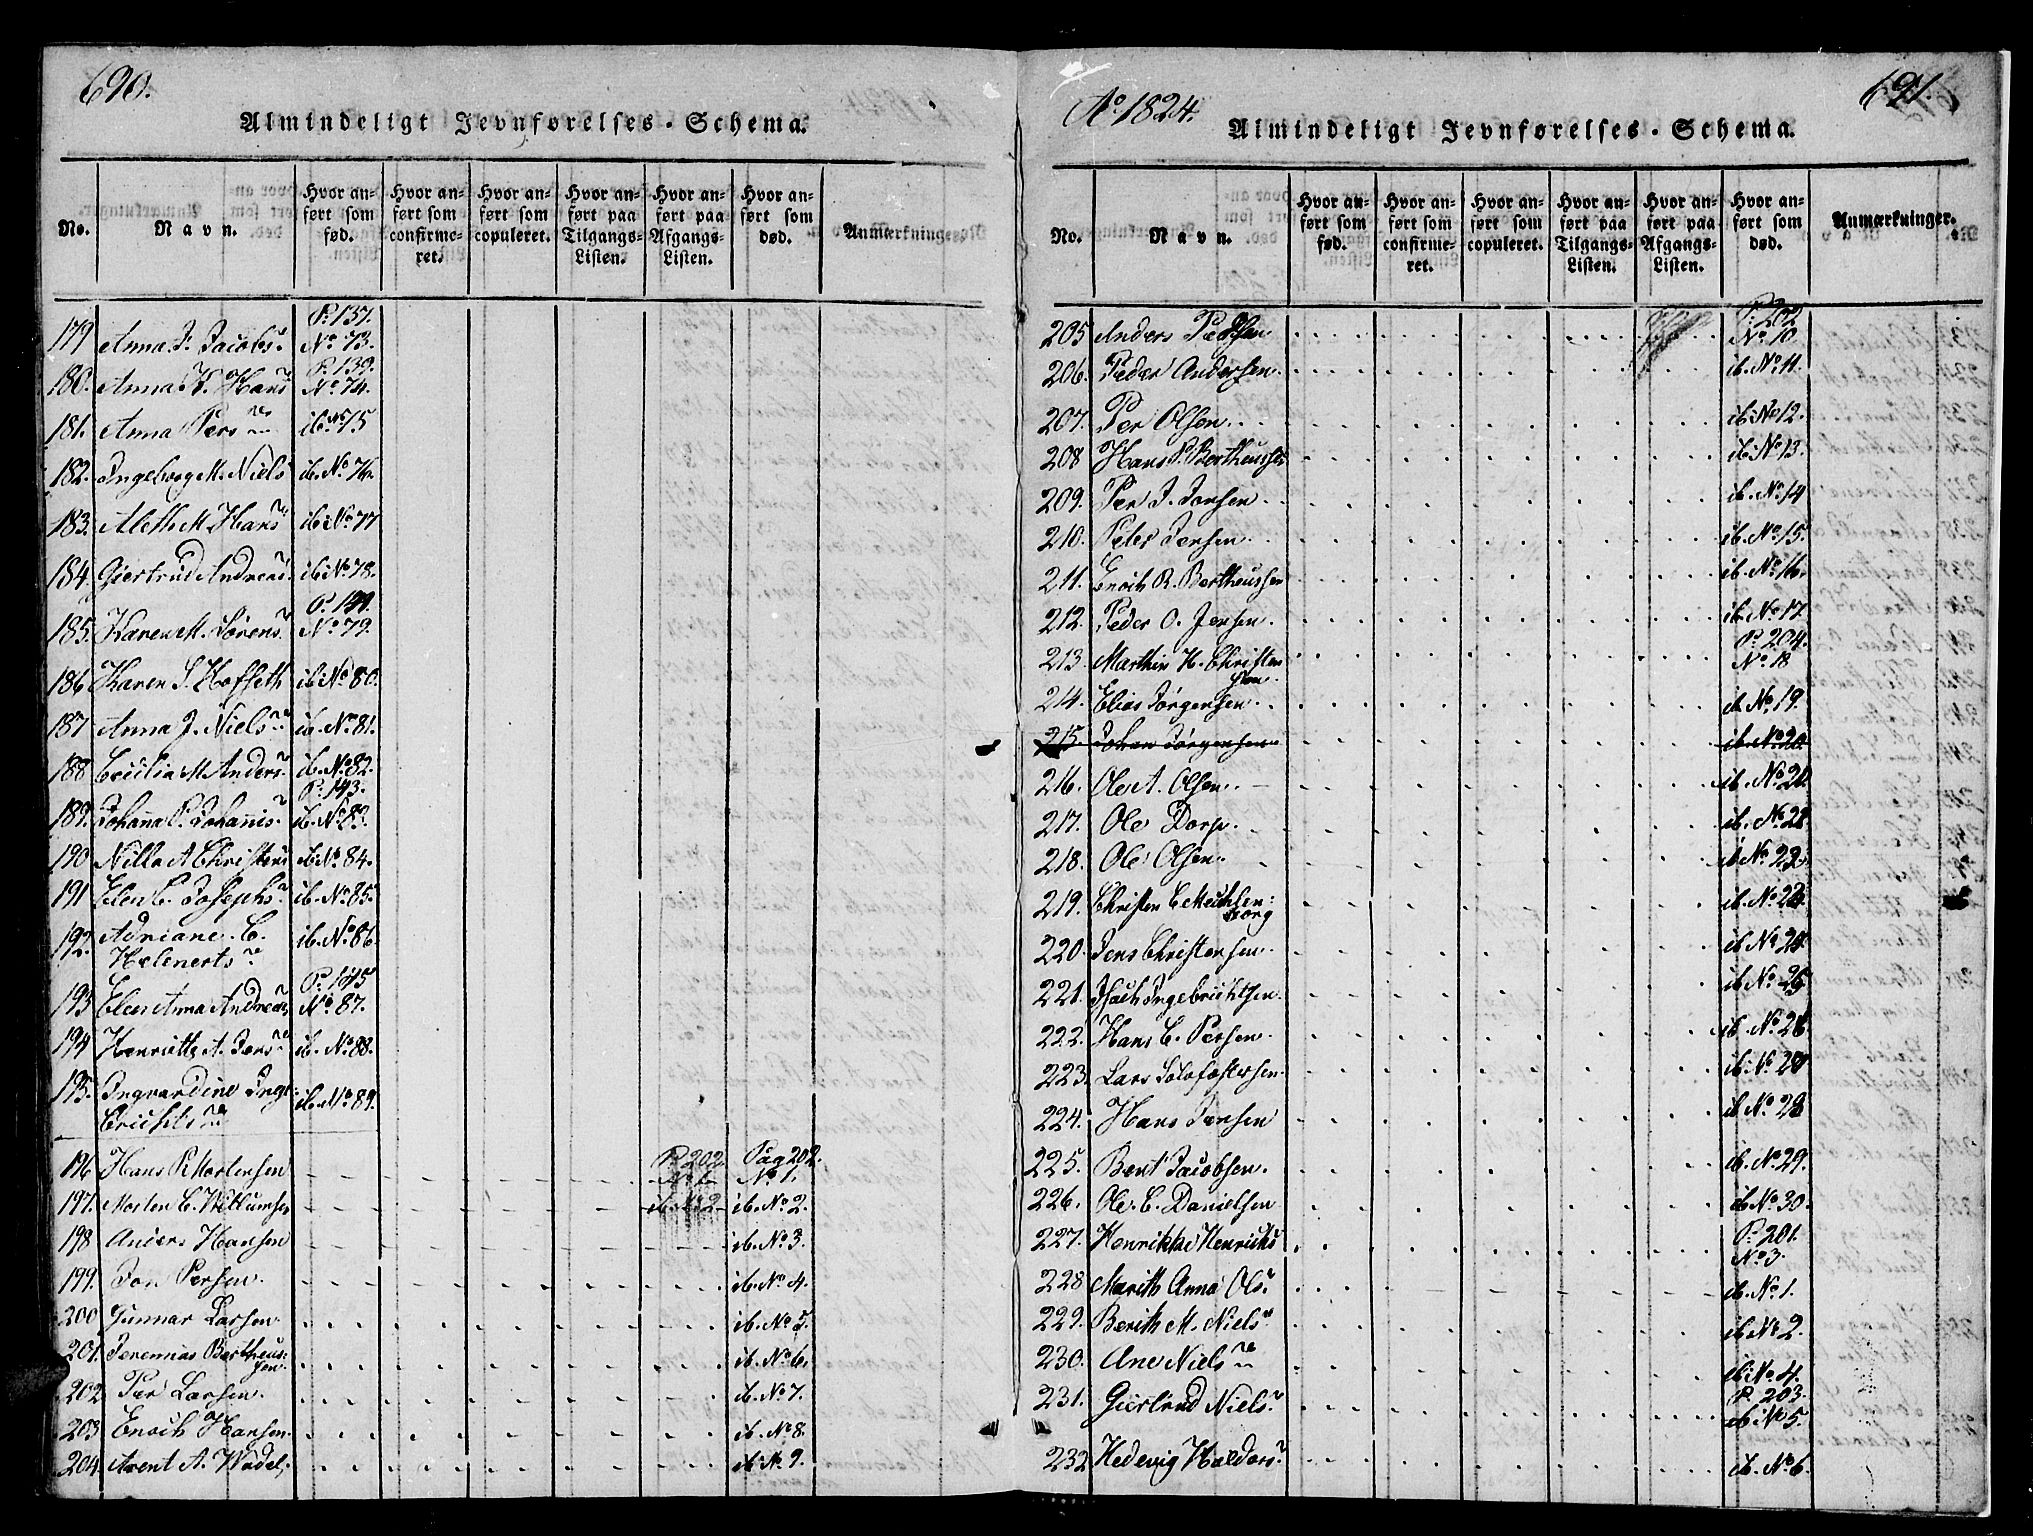 690.
Almindeligt Jevnførelses-Schema.
No.
Navn.
Hvor anført som fød.
Hvor anført som confirmeret.
Hvor anført som copuleret.
Hvor anført paa Tilgangs-Listen.
Hvor anført paa Afgangs-Listen.
Hvor anført som død.
Anmærkninger.
179 Anna J. Jacobs. P. 137. No. 73.
180. Anna K. Hans P. 139. No. 74.
181. Anna Pers ib. No. 75
182. Ingeborg M. Niels ib. No. 76.
183. Aleth M Hans ib No. 77
184. Giertrud Andreas. ib No. 78.
185. Karen M. Sørens P. 141. No. 79.
186 Karen S. Hofseth ib No. 80.
187 Anna J. Niels ib. No. 81.
188 Cecilia M Anders. ib. No. 82.
189. Johanna P. Johannis. P. 143. ib. No. 83.
190 Nilla A Christens ib No. 84.
191 Elen C. Josephs. ib. No. 85.
192. Adriane C. Helenerts ib. No. 86.
193 Elen Anna Andreas P. 145 No. 87.
194 Henriette A. Jens ib. No. 88.
195. Ingvardine Inge-
brichts ib. No. 89.
196 Hans P. Mortensen P. 202. No. 1. Pag 202. No. 1.
197. Morten C. Willumsen ib. No. 2. ib. No. 2.
198 Anders Hansen ib. No. 3.
199. Jon Persen. ib. No. 4.
200 Gunnar Larsen ib. No. 5.
201. Jeremias Bertheus-
sen. ib. No. 6.
202 Per Larsen. ib. No. 7.
203 Enoch Hansen ib. No. 8.
204. Arent A. Wadel. ib. No. 9.
Ao. 1824.
691.
Almindeligt Jevnførelses-Schema.
No.
Navn.
Hvor anført som fød.
Hvor anført som confirmeret.
Hvor anført som copuleret.
Hvor anført paa Tilgangs-Listen.
Hvor anført paa Afgangs-Listen.
Hvor anført som død.
Anmærkninger.
205 Anders Pedersen P. 202 No. 10
206. Peder Andersen. ib. No. 11.
207. Per Olsen. ib No. 12.
208 Hans P. Bertheussen ib No. 13.
209. Per J. Jonsen ib. No. 14
210. Peter Jensen ib. No. 15.
211. Enoch R. Bertheussen ib. No. 16.
212. Peder O. Jensen. ib. No. 17.
213. Marthin H. Christen
sen. P. 204. No. 18
214. Elias Jørgensen. ib. No. 19.
215. Johan Jørgensen ib. No. 20.
216. Ole A. Olsen. ib. No. 20
217. Ole Dorp. ib. No. 21
218. Ole Olsen. ib No. 22.
219. Christen C Meuhlen:
borg ib. No. 23.
220. Jens Christensen. ib No. 24.
221. Isach Ingebrichtsen. ib No. 25
222. Hans C. Persen. ib. No. 26
223. Lars Tolofostersen. ib. No. 27
224. Hans Jensen ib No. 28
225. Bent Jacobsen. ib. No. 29.
226. Ole C. Danielsen ib No. 30.
227. Henrikke Henrichs P. 201. No. 3.
228 Marith Anna Ols. ib. No. 1.
229. Berith M. Niels ib. No. 2.
230. Ane Niels ib No. 4.
231. Giertrud Niels. P. 203. ib No. 5.
232 Hedevig Haldors. ib. No. 6.